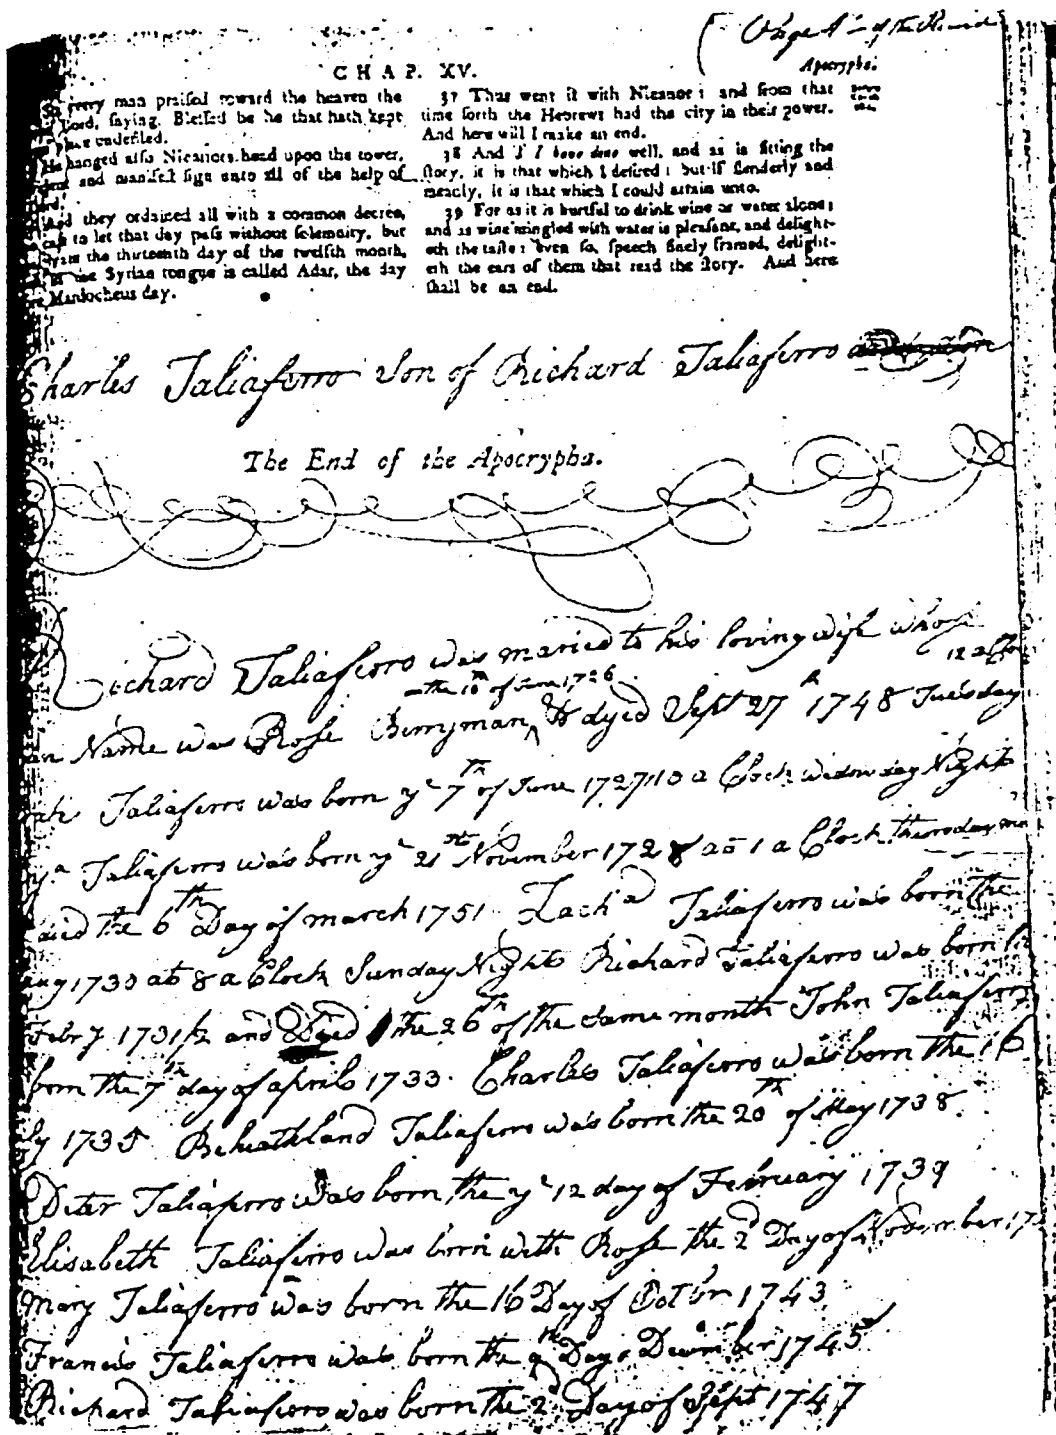 of the
Apocrypha.
CHAP. XV.
every man praised toward the heaven the
Lord, saying, Blessed be he that hath kept
place undefiled.
He hanged also Nicanors head upon the tower,
and manifest sign unto all of the help of
And they ordained all with a common decree,
to let that day pass without solemnity, but
the thirteenth day of the twelfth month,
in the Syrian tongue is called Adar, the day
Mardocheus day.
37 Thus went it with Nicanor: and from that
time forth the Hebrews had the city in their power.
And here will I make an end.
38 And if I have done well, and as is fitting the
story, it is that which I desired: but if slenderly and
meanly, it is that which I could attain unto.
39 For as it is hurtful to drink wine or water alone;
and as wine mingled with water is pleasant, and delight-
eth the taste: even so, speech finely framed, delight-
eth the ears of them that read the story. And here
shall be an end.
Charles Taliaferro Son of Richard Taliaferro
The End of the Apocrypha.
Richard Taliaferro was maried to his loving wife whose
12 a Clock
the 10th of June 1726
Name was Rose Berryman, dyed Sept 27th 1748 Tuesday
Taliaferro was born ye 7th of June 1727 10 a Clock wednsday Night
Taliaferro was born ye 21st November 1728 at 1 a Clock thursday
died the 6th Day of march 1751 Zachd Taliaferro was born the
Aug 1730 at 8 a Clock Sunday Night Richard Taliaferro was born
Febry 1731/2 and Dyed the 26th of the same month John Taliaferro
born the 7th day of april 1733. Charles Taliaferro was born the 16
1735 Beheathland Taliaferro was born the 20th of May 1738.
Peter Taliaferro was born, the ye 12 day of February 1739
Elisabeth Taliaferro was born with Rose the 2d Day of November 17
Mary Taliaferro was born the 16 Day of Octbr 1743
Francis Taliaferro was born the 9th Day Decmber 1745
Richard Taliaferro was born the 2d Day of Sept 1747